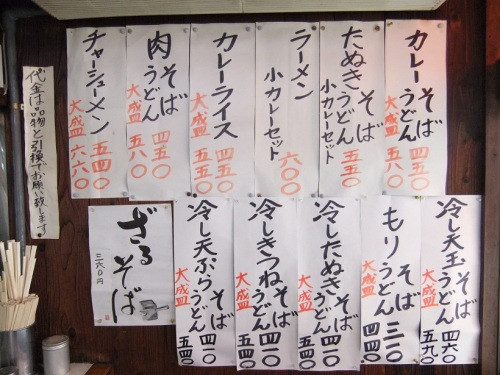 カレー そば うどん 四五〇
大盛 五八〇
たぬき そば うどん
小カレーセット 五五〇
ラーメン
小カレーセット 六〇〇
カレーライス 四五〇
大盛 五五〇
肉 そば うどん 四五〇
大盛 五八〇
チャーシューメン 五四〇
大盛 六六〇
代金は品物と引換でお願い致します
冷し天玉 そば うどん 四六〇
大盛 五九〇
もり そば うどん 三一〇
大盛 四四〇
冷したぬき そば うどん 四一〇
大盛 五四〇
冷しきつね そば うどん 四一〇
大盛 五四〇
冷し天ぷら そば うどん 四一〇
大盛 五四〇
ざるそば
三六〇円